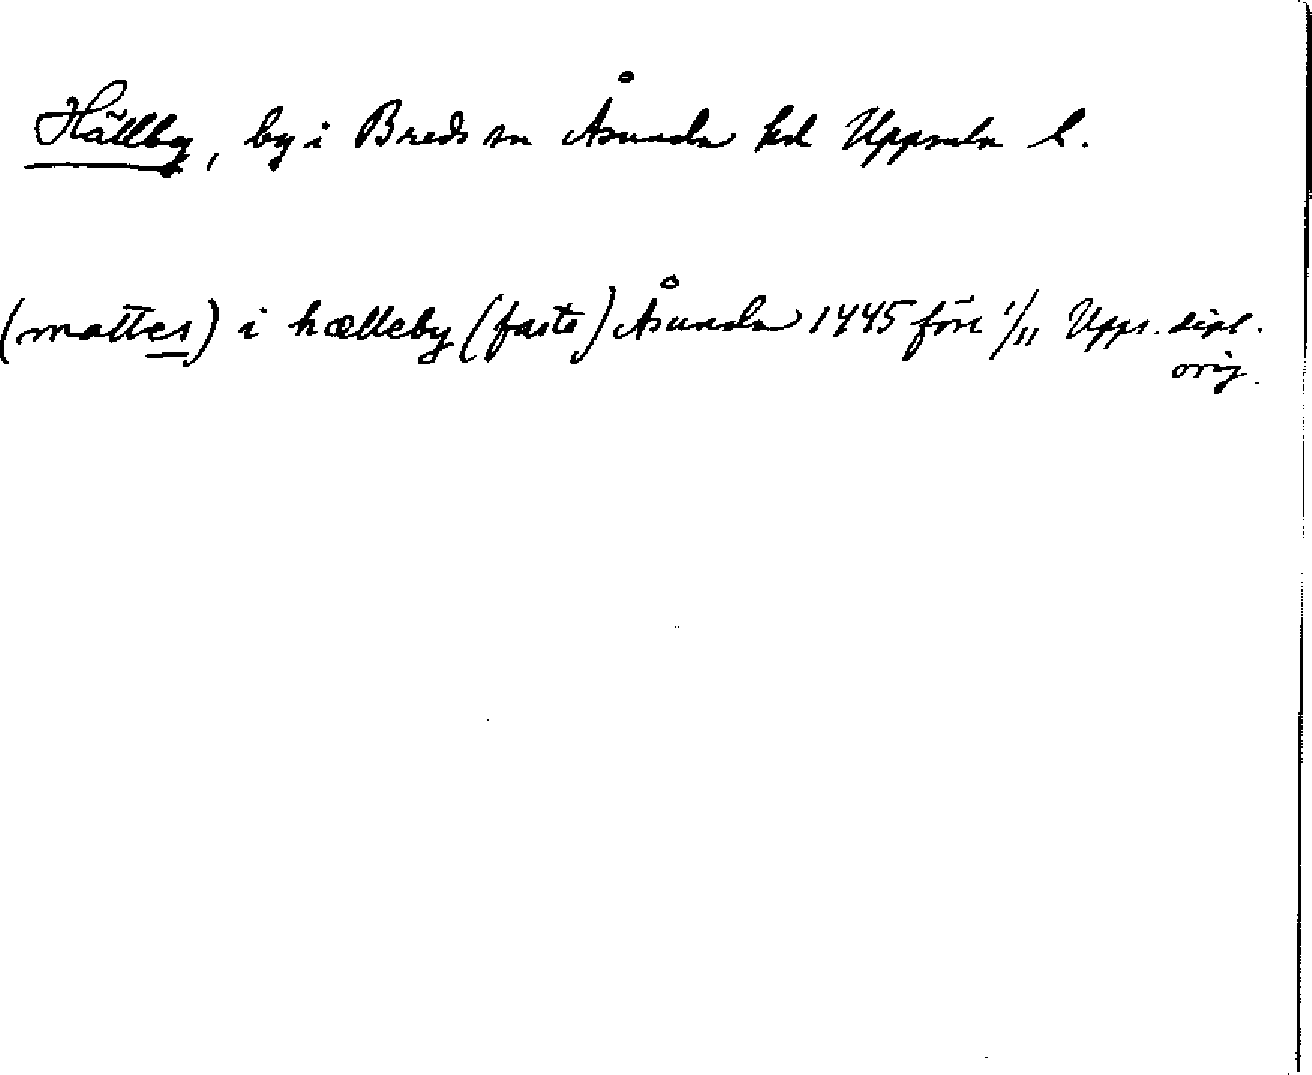 Hällby, by i Breds sn Åsunda hd Uppsala l.
(mattes) i hælleby (faste) Åsunda 1445 före 1/11 Upps. dipl.
orig.